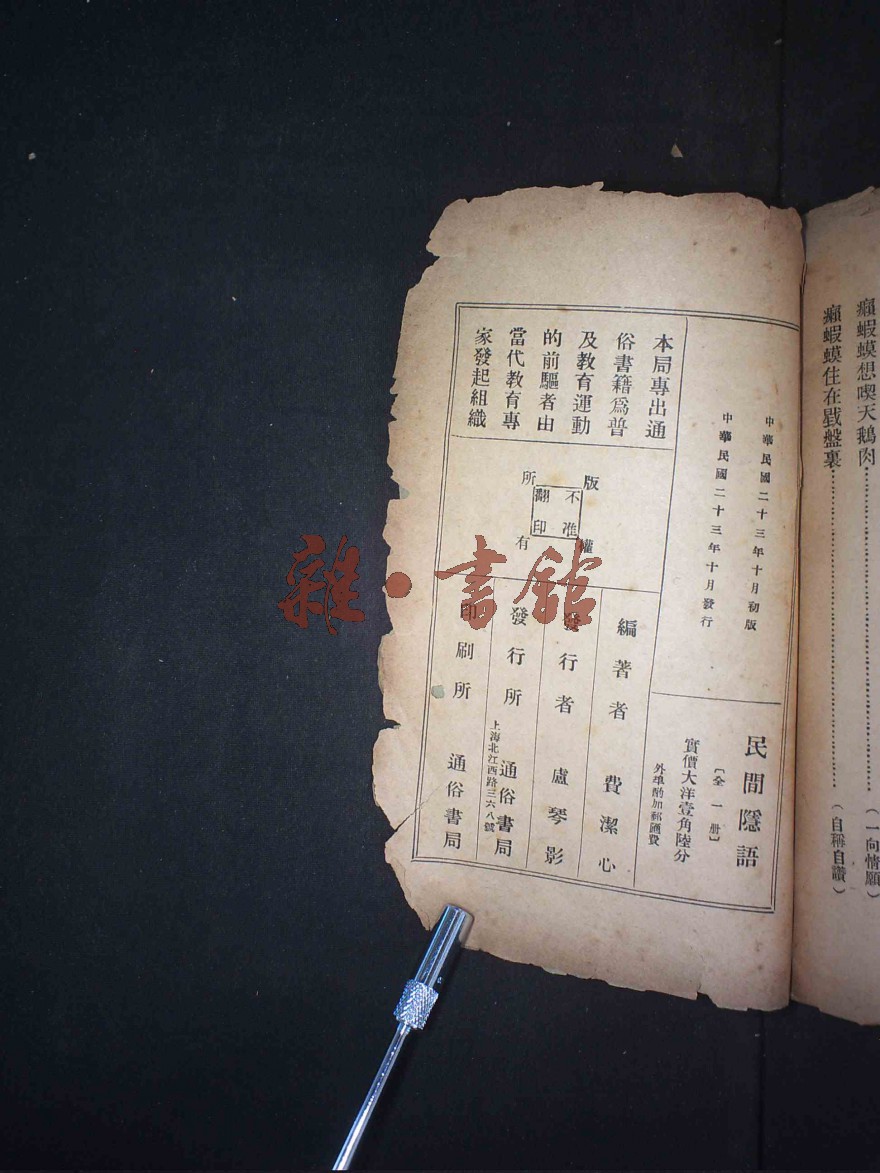 癩蝦蟆想喫天鵝肉……………………（一向情願）
癩蝦蟆住在戥盤裏……………………（自稱自讚）
中華民國二十三年十月初版
中華民國二十三年十月發行
民間隱語
〔全一册〕
實價大洋壹角陸分
外埠酌加郵匯費
本局專出通
俗書籍爲普
及教育運動
的前驅者由
當代教育專
家發起組織
版權
所有
不准
翻印
編著者 費潔心
發行者 盧琴影
發行所 通俗書局
上海北江西路三六八號
印刷所 通俗書局
雜·書館